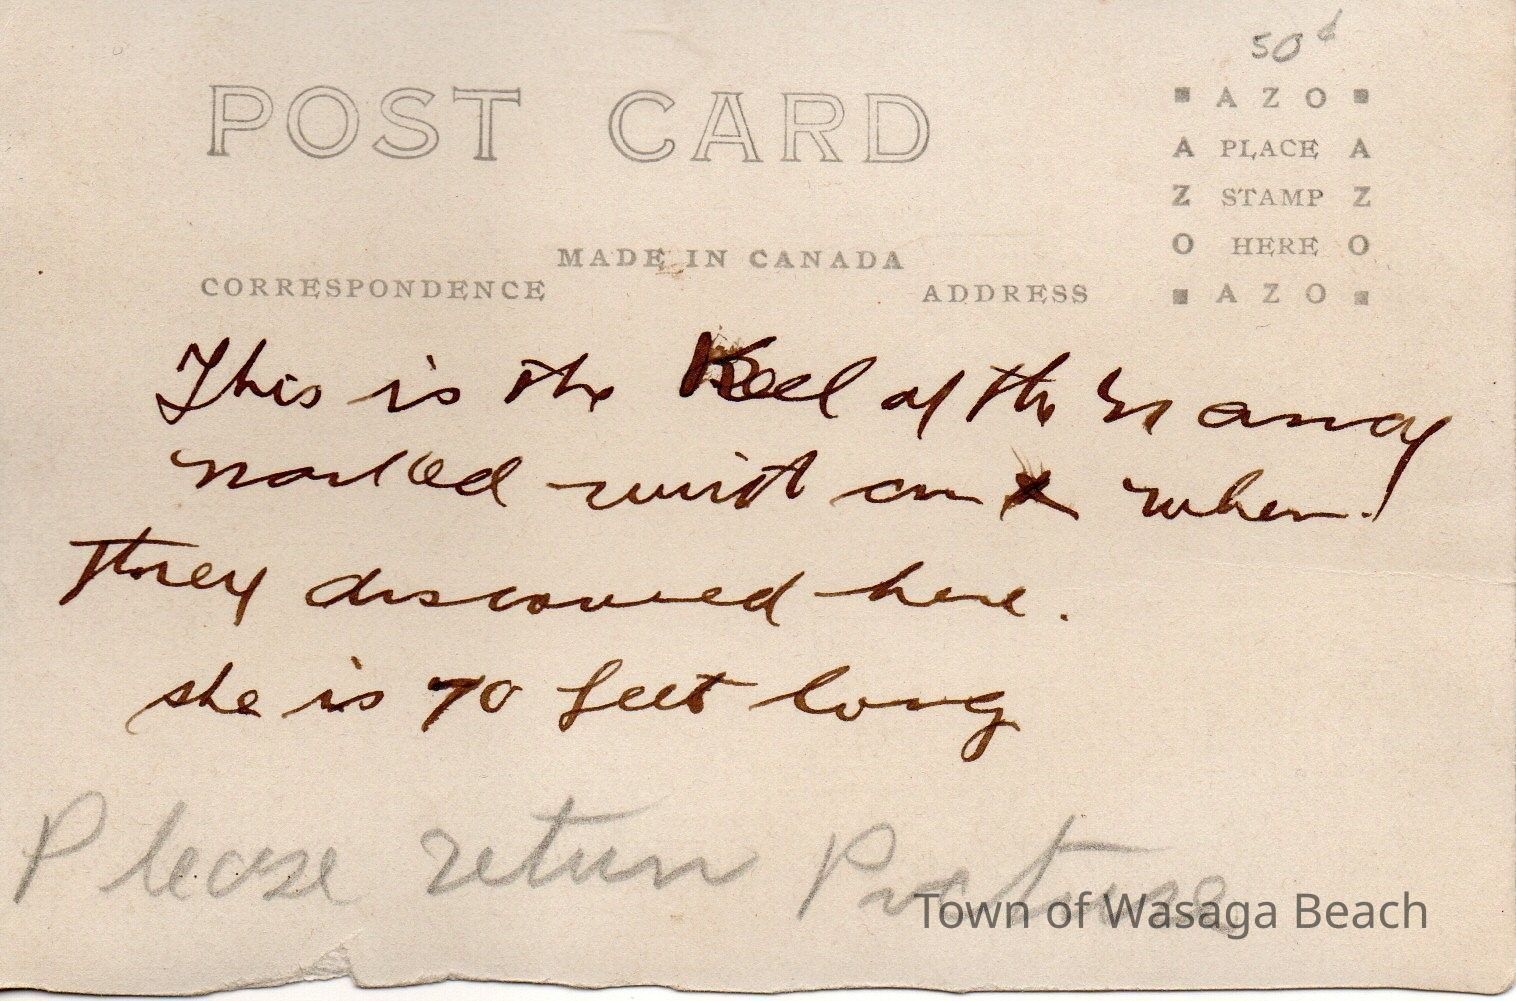 50¢
POST CARD
AZO
A PLACE A
Z STAMP Z
O HERE O
AZO
MADE IN CANADA
CORRESPONDENCE ADDRESS
This is the Keel of the Nancy
marked with an x when
they discovered here.
she is 70 feet long
Please return Picture
Town of Wasaga Beach